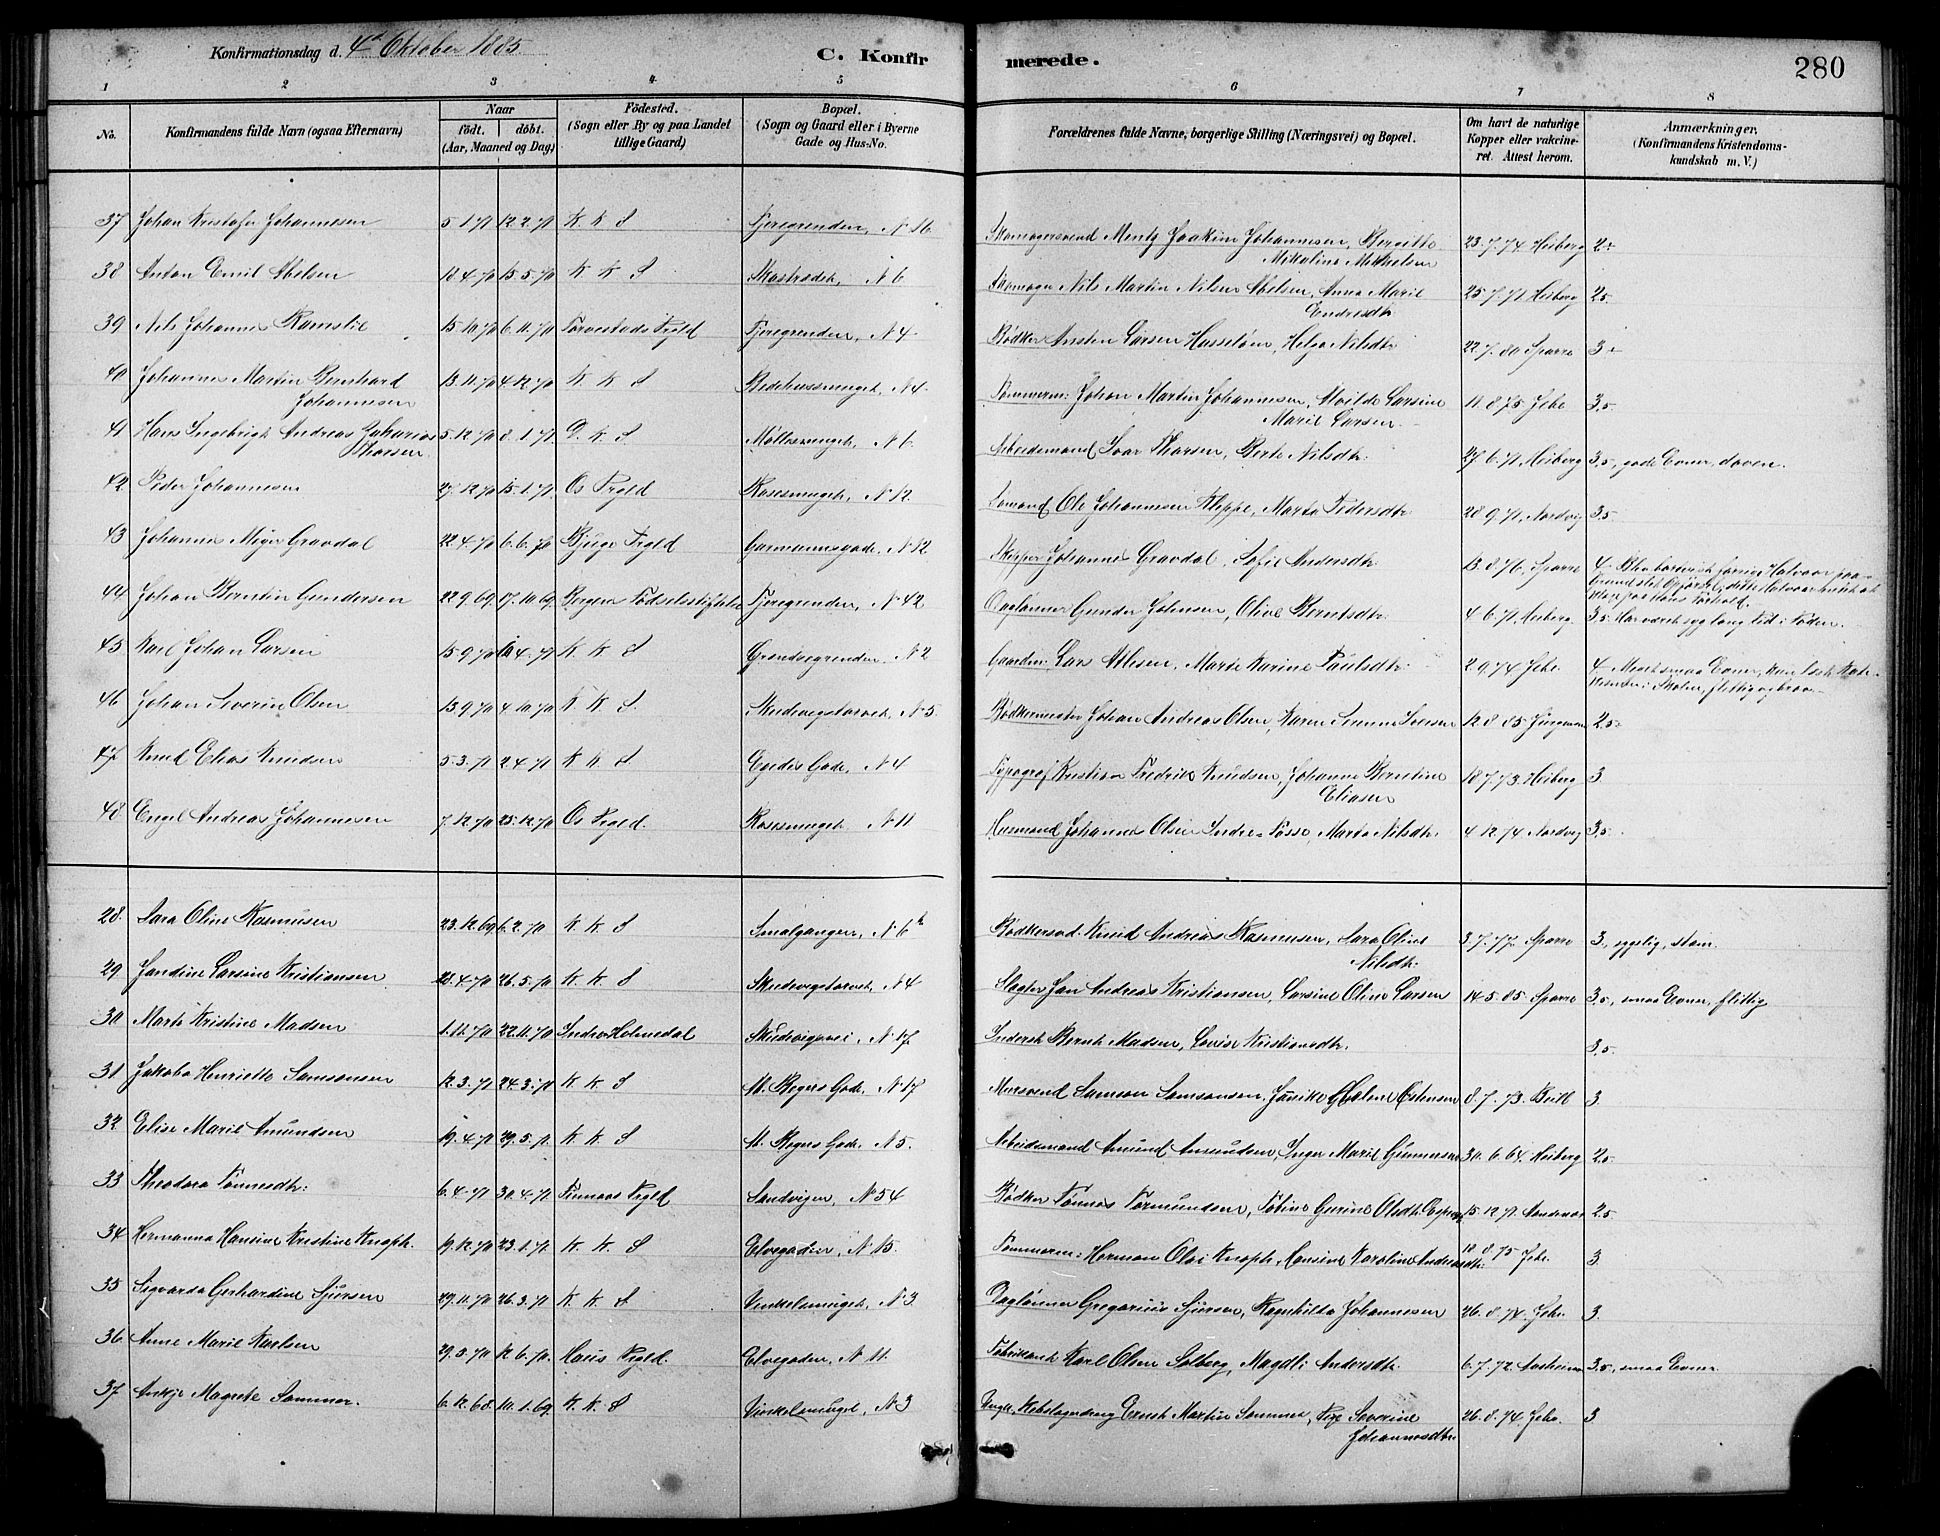 Konfirmationsdag d. 4de Oktober 1885
C. Konfirmerede.
280
1 2 3 4 5 6 7 8
No. Konfirmandens fulde Navn (ogsaa Efternavn) Naar født. døbt. (Aar, Maaned og Dag) Fødested. (Sogn eller By og paa Landet tillige Gaard) Bopæl. (Sogn og Gaard eller i Byerne Gade og Hus-No. Forældrenes fulde Navne, borgerlige Stilling (Næringsvei) og Bopæl. Om havt de naturlige Kopper eller vakcineret. Attest herom. Anmærkninger. (Konfirmandens Kristendomskundskab m. V.)
37 Johan Kristofer Johannesen 5.1.70 12.2.70 K. K. S Fjeregrenden, N 16 Skomagersvend Mentz Joakim Johannesen, Bergitte Mikaline Mikkelsen 23.7.74 Heiberg 2÷
38 Anton Emil Abelsen 18.4.70 15.5.70 K K S N 6 Skomager Nils Martin Nilsen Abelsen, Anna Marie Endresdtr 25.7.71 Heiberg 2,5
39 Nils Johannes Ramslie 15.10.70 6.11.70 Torvestads Prgld Fjeregrenden, N 4 Bødker Austen Larsen Hasseløen, Helga Nilsdtr 22.7.80 Sparre 3÷
40 Johannes Martin Bernhard Johannesen 13.11.70 4.12.70 K K S Bedehussmuget, N 4 Tømmerm: Johan Martin Johannesen, Alvilde Larsine Marie Larsen 11.8.75 Jebe 3,5.
41 Hans Ingebrigt Andreas Zakarias Thorsen 5.12.70 8.1.71 D. K S Møllesmuget, N 6. Arbeidsmand Ivar Thorsen, Berte Nilsdtr. 27.6.71, Heiberg 3,5, gode Evner, doven.
42 Peder Johannesen 27.12.70 15.1.71 Os Prgld Rosesmuget, N 12 Sømand Ole Johannesen Kleppe, Marta Pedersdtr 28.9.71, Nordvig 3,5.
43 Johannes Meyer Gravdal 22.4.70 6.6.70 Bjuge Prgld Garmannsgade, N 12 Skipper Johannes Gravdal, Sofie Andersdtr. 13.8.76. Sparre 4.
44 Johan Berntin Gundersen 22.9.69 17.10.69 Bergens Fødselsstiftelse Fjeregrenden, N 42 Daglønner Gunder Johnsen, Oline Berntsdtr. 4.6.71, Heiberg 3,5. Har været syg lang tid i Foden.
45 Karl Johan Larsen 15.9.70 K. K. S N 2 Gaardm: Lars Atlesen, Marte Karine Paulsdtr. 2.9.74 Jebe 4. Meget smaa Evner, flittig og brav.
46 Johan Severin Olsen 13.9.70 4.10.70 K K S. Skudevigstorvet, N 5. Bødkermester Johan Andreas Olsen, Karen Simine Iversen 12.8.85 Jürgensen 2,5.
47 Knud Elias Knudsen 5.3.71 2.4.71 K K S Egedes Gade, N 4 Typograf Kristian Fredrik Knudsen, Johanne Berntine Eliasen 18.7.73. Heiberg 3
48 Engel Andreas Johannesen 7.12.70 25.12.70 Os Prgld. Rosesmuget N 11 Huusmand Johannes Olsen Indre Tøsse, Marta Nilsdtr. 4.12.74 Nordvig 3,5.
28. Sara Oline Rasmusen 23.12.69 6.2.70 K. K. S Smalgangen, N 6b Bødkersvd. Knud Andreas Rasmusen, Sara Oline Nilsdtr. 3.7.77. Sparre 3, sygelig, stam.
29 Jandine Larsine Kristiansen 28.4.70 26.5.70 K. K. S Skudevigstorvet, N 4 Slagter Jan Andreas Kristiansen, Larsine Oline Larsen 14.5.85 Sparre 3,5, smaa Evner, flittig
30 Marte Kristine Madsen 1.11.70 22.11.70 Indre Holmedal Skudevigsvei, N 17 Inderst Bernt Madsen, Lovise Kristiansdtr. 3,5.
31 Jakoba Henriette Samsonsen 12.3.71 24.3.71 K. K. S M. Bøgers Gade, N 17 Mursvend Samson Samsonsen, Helene Østensen 8.7.73. Beitl 3.
32 Elise Marie Amundsen 19.4.71 29.5.71. K K S M. Bøgers Gade, N 5. Arbeidsmand Amund Amundsen, Inger Marie Gunnersen 30.6.64. Heiberg 2,5.
33 Theodora Tønnesdtr: 6.4.71 30.4.71. Finnaas Prgld Sandvigen, N 54 Bødker Tønnes Tormundsen, Tobine Gurine Olsdtr 15.12.71 2,5.
34 Hermanna Hansine Kristine Knoph. 19.12.70 23.1.71. K. K. S Elvegaden, N 15. Tømmerm: Herman Olai Knoph, Hansine Karoline Andreasdtr. 18.8.75 Jebe. 3.
35 Sigvarda Gerhardine Sjursen 29.11.70 26.3.71 K. K. S Vinkelsmuget, N 3 Dagløanner Gregorius Sjursen, Ragnhilda Johannesen 26.8.74. Jebe 3.
36 Anne Marie Karlsen 29.5.70 12.6.70. Haus Prgld. Elvegaden, N 11. Fabrikant Karl Olsen Solberg, Magdli Andersdtr. 6.7.72. Aasheim 3,5, smaa Evner.
37 Antje Magrete Sommer. 6.12.68. 10.1.69. K. K. S Vinkelsmuget, N 3 Ernst Martin Sommer, Severine Johannesdtr. 26.8.74. Jebe. 3